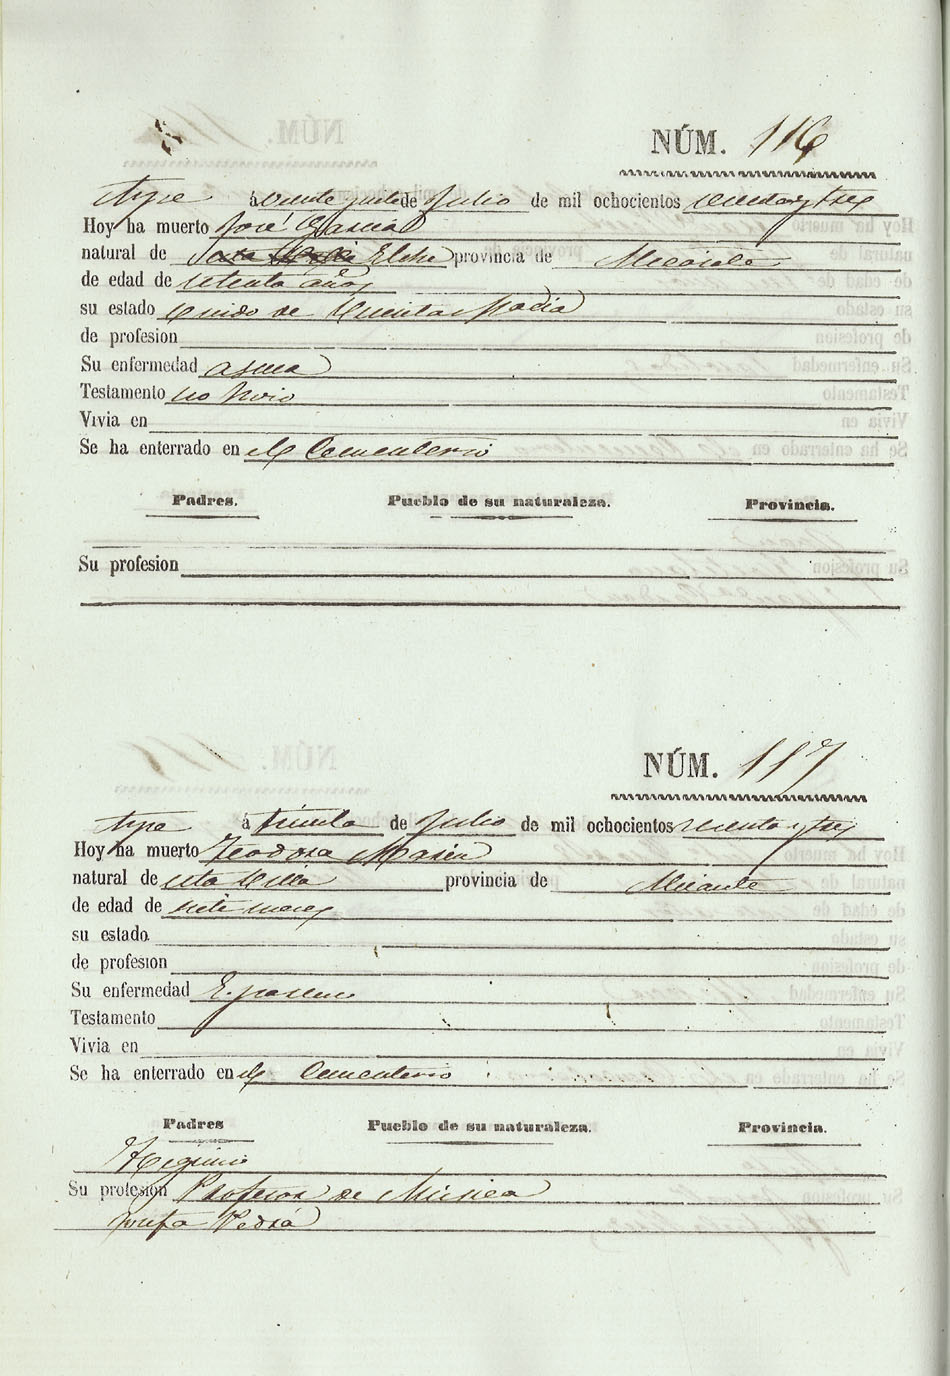 NÚM. 116
Aspe á veinte y siete de Julio de mil ochocientos setenta y tres
Hoy ha muerto José Garcia
natural de Elche provincia de Alicante
de edad de setenta años
su estado viudo de
de profesion
Su enfermedad asma
Testamento no hizo
Vivia en
Se ha enterrado en el Cementerio
Padres. Pueblo de su naturaleza. Provincia.
Su profesion
NÚM. 117
Aspe á treinta de Julio de mil ochocientos setenta y tres
Hoy ha muerto Teodora
natural de esta Villa provincia de Alicante
de edad de siete meses
su estado
de profesion
Su enfermedad
Testamento
Vivia en
Se ha enterrado en el Cementerio
Padres Pueblo de su naturaleza. Provincia.
Higinio
Su profesion Profesor de Música
Josefa Pedrá